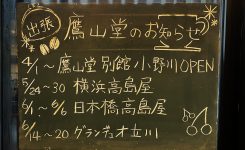 出張 鷹山堂のお知らせ
4/1～鷹山堂 別館 小野川OPEN
5/24～30 横浜高島屋
6/1～6/6 日本橋高島屋
6/14～20 グランデュオ立川